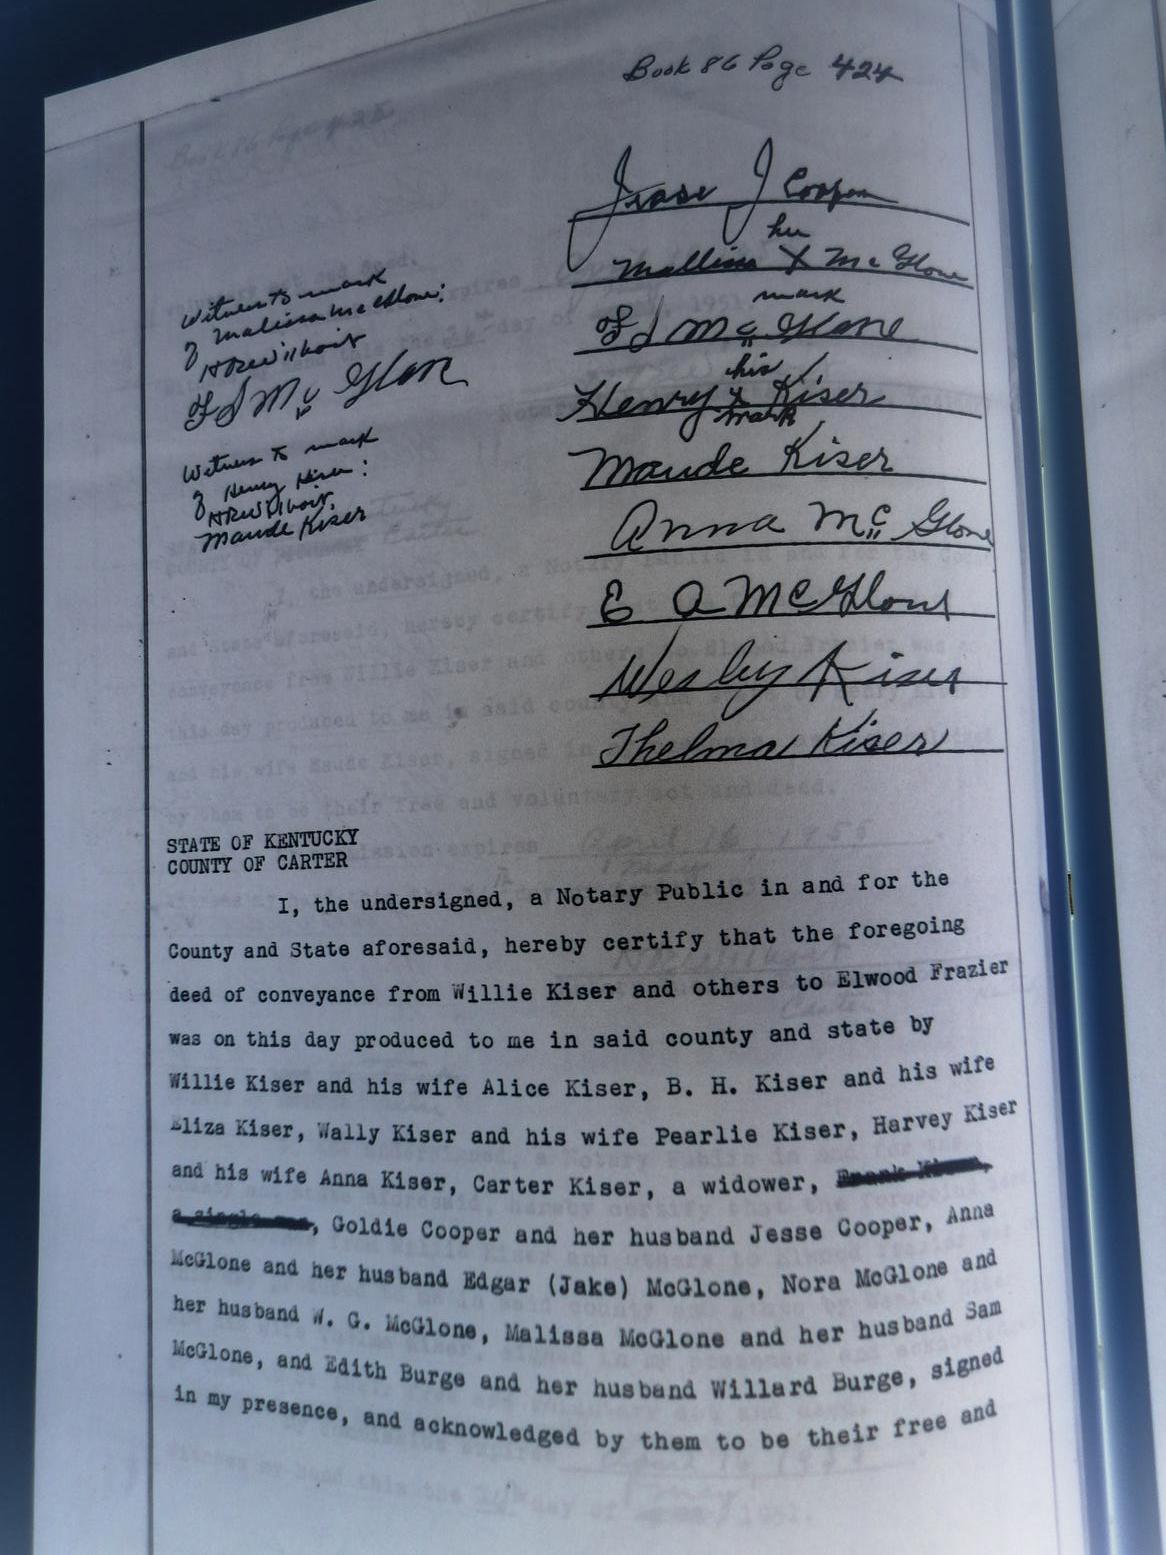 Book 86 Page 424
Jesse J Cooper
her
Mallissa X McGlone
mark
S McGlone
his
Henry X Kiser
mark
Maude Kiser
Anna McGlone
E A McGlone
Wesley Kiser
Thelma Kiser
Witness to mark
of Malissa McGlone:
McGlone
Witness to mark
of Henry Kiser:
Maude Kiser
STATE OF KENTUCKY
COUNTY OF CARTER
I, the undersigned, a Notary Public in and for the
County and State aforesaid, hereby certify that the foregoing
deed of conveyance from Willie Kiser and others to Elwood Frazier
was on this day produced to me in said county and state by
Willie Kiser and his wife Alice Kiser, B. H. Kiser and his wife
Eliza Kiser, Wally Kiser and his wife Pearlie Kiser, Harvey Kiser
and his wife Anna Kiser, Carter Kiser, a widower,
a single man, Goldie Cooper and her husband Jesse Cooper, Anna
McGlone and her husband Edgar (Jake) McGlone, Nora McGlone and
her husband W. G. McGlone, Malissa McGlone and her husband Sam
McGlone, and Edith Burge and her husband Willard Burge, signed
in my presence, and acknowledged by them to be their free and